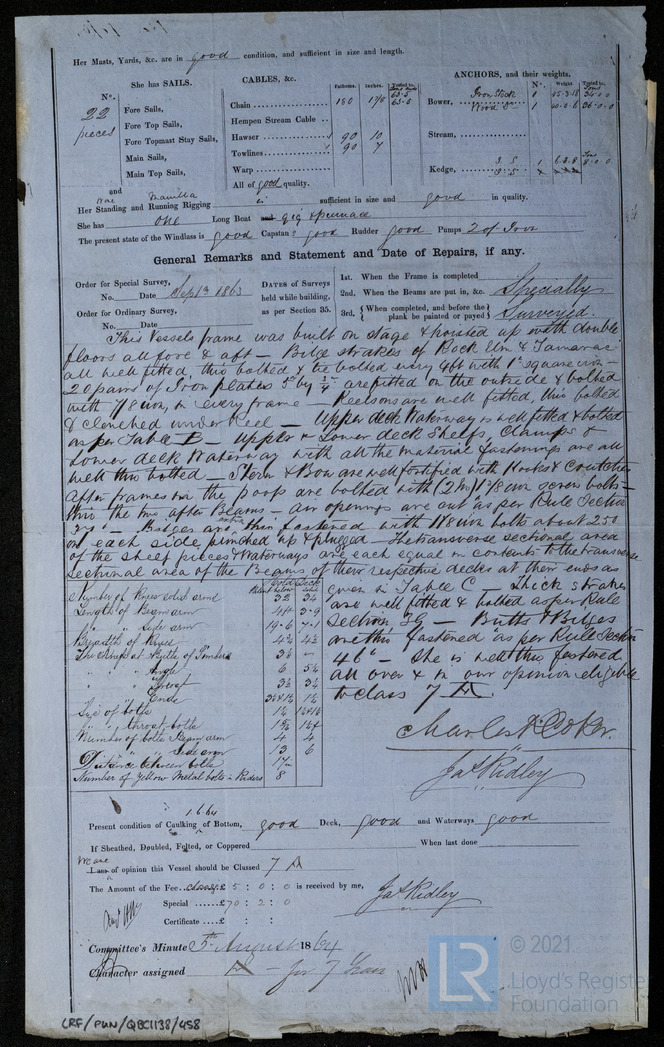 Her Masts, Yards, &c. are in good condition, and sufficient in size and length.
She has SAILS.
CABLES, &c.
ANCHORS, and their weights.
No.
22 pieces
Fore Sails,
Fore Top Sails,
Fore Topmast Stay Sails,
Main Sails,
Main Top Sails,
and
Fathoms. Inches.
Chain 180 1 7/8 63.5
63.5
Hempen Stream Cable
Hawser 90 10
Towlines 90 7
Warp
All of good quality.
No. Weight.
Bower, Iron Stock 1
Wood Do 1
Stream,
Kedge,
Her Standing and Running Rigging Wire Manilla sufficient in size and good in quality.
She has one Long Boat and gig & pinnace
The present state of the Windlass is good Capstan good Rudder good Pumps 2 of Iron
General Remarks and Statement and Date of Repairs, if any.
Order for Special Survey,
No. Date Sep 1863
Order for Ordinary Survey,
No. Date
DATES of Surveys
held while building,
as per Section 35.
1st. When the Frame is completed
2nd. When the Beams are put in, &c.
3rd. { When completed, and before the plank be painted or payed }
Specially
Surveyed.
This Vessels frame was built on stage & hoisted up with double
floors all fore & aft — Bilge strakes of Rock Elm & Tamarac
all well fitted, thro bolted & tre bolted every 4ft with 1" square iron —
20 pairs of Iron plates 5" by 3/4" are fitted on the outside & bolted
with 7/8 iron, in every frame — Keelsons are well fitted, thro bolted
& clenched under Keel — Upper deck Waterway is well fitted & bolted
as per Table B — Upper & Lower deck Shelfs, Clamps &
Lower deck Waterway with all the material fastenings are all
well thro bolted — Stern & Bow are well fortified with Hooks & Crutches
after frames in the poop are bolted with (2 in) 1 3/8 iron screw bolts —
thro the two after Beams — air openings are cut as per Rule Section
39" — Bilges are thro fastened with 1 1/8 iron bolts about 250
on each side, pinched up & plugged — The transverse sectional area
of the shelf pieces & Waterways are each equal in contents to the transverse
sectional area of the Beams of their respective decks at their ends as
given in Table C — Thick strakes
are well fitted & bolted as per Rule
Section 36 — Butts & Bilges
are thro fastened as per Rule Section
46" — She is well thro fastened
all over & in our opinion eligible
to class 7 A.
Hold Deck
Number of Knees solid armd 32 34
Length of Beam arm
" " Side arm
Breadth of Knees
Thickness at Butts of Timbers
" " " Angle
" " Throat
" " Ends
Size of bolts
" " throat bolts
Number of bolts Beam arm 4 4
" " Side arm 13 6
Distance between bolts 17
Number of Yellow Metal bolts in Riders 8
Charles Coker.
Jas Ridley
1.6.64
Present condition of Caulking of Bottom, good Deck, good and Waterways good
If Sheathed, Doubled, Felted, or Coppered When last done
We are
I am of opinion this Vessel should be Classed 7 A
The Amount of the Fee £ 5 : 0 : 0 is received by me, Jas Ridley
Special £ 70 : 2 : 0
Certificate £ : :
Committee's Minute 5th August 1864
Character assigned A — for 7 Years
LRF/PUN/QBC1138/458
LR
© 2021
Lloyd's Register
Foundation